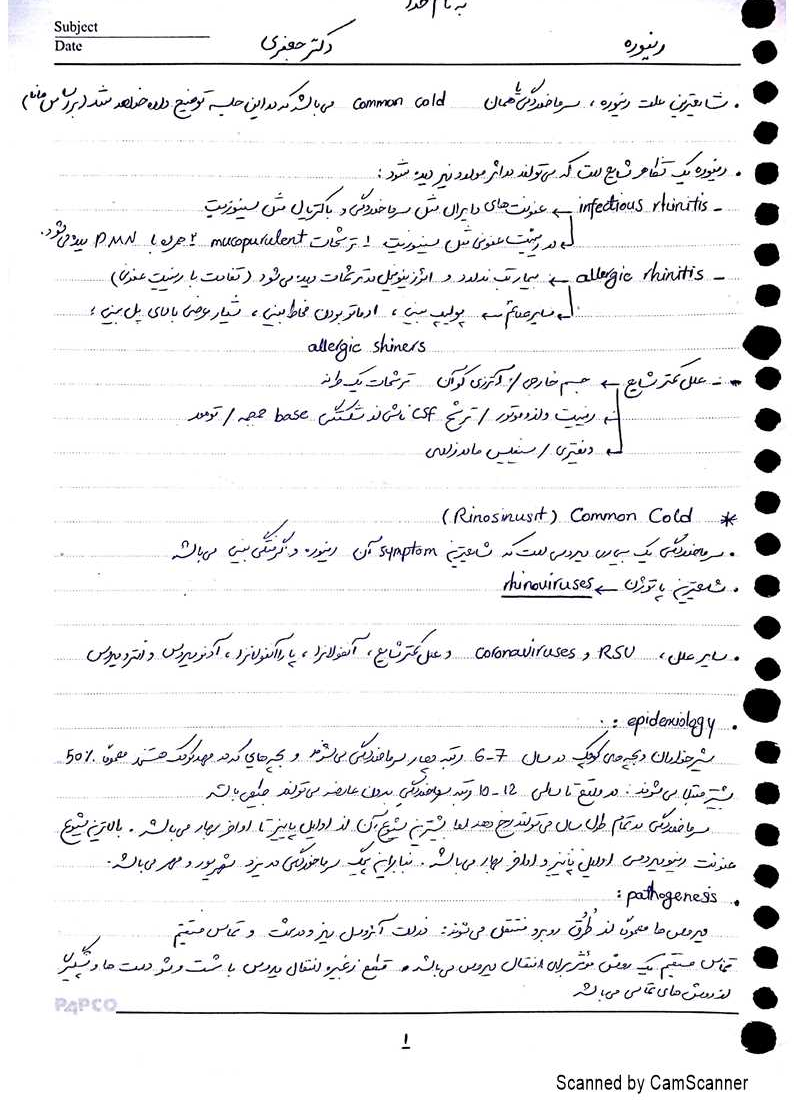 به نام خدا
Subject
Date
رینوره
دکتر جعفری
• شایعترین علت رینوره ، سرماخوردگی یا همان common cold می‌باشد که در این جلسه توضیح داده خواهد شد (براساس
• رینوره یک تظاهر شایع است که می‌تواند در اثر موارد زیر دیده شود :
- infectious rhinitis ← عفونت‌های وایرال مثل سرماخوردگی و باکتریال مثل سینوزیت
در رینیت عفونی مثل سینوزیت ! ترشحات mucopurulent همراه با PMN دیده می‌شود.
- allergic rhinitis ← بیمار تب ندارد و ائوزینوفیل در ترشحات دیده می‌شود (تفاوت با رینیت عفونی)
سایر علائم ← پولیپ بینی ، ادماتو بودن مخاط بینی ، شیار عرضی بالای پل بینی ،
allergic shiners
- علل کمتر شایع ← جسم خارجی / آترزی کوآن ترشحات یک طرفه
رینیت وازوموتور / ترشح CSF ناشی از شکستگی base جمجه / تومور
دیفتری / سیفلیس مادرزادی
* Common Cold (Rinosinusit)
• سرماخوردگی یک بیماری ویروسی است که شایعترین symptom آن رینوره و گرفتگی بینی می‌باشد
• شایعترین پاتوژن ← rhinoviruses
• سایر علل ، RSV و coronaviruses و علل کمتر شایع ، آنفولانزا ، پاراآنفولانزا ، آدنوویروس و انترویروس
• epidemiology :
شیرخواران و بچه‌های کوچک در سال 7-6 مرتبه دچار سرماخوردگی می‌شوند و بچه‌هایی که در مهدکودک هستند معمولا 50%
بیشتر مبتلا می‌شوند : در واقع تا سالی 12-10 مرتبه سرماخوردگی بدون عارضه می‌تواند طبیعی باشد
سرماخوردگی در تمام طول سال می‌تواند رخ دهد اما بیشترین شیوع آن از اوایل پاییز تا اواخر بهار می‌باشد . بالاترین شیوع
عفونت رینوویروس اوایل پائیز و اواخر بهار می‌باشد . بنابراین پیک سرماخوردگی در یزد شهریور و مهر می‌باشد.
• pathogenesis :
ویروس‌ها معمولا از طُرُق روبرو منتقل می‌شوند : ذرات آئروسل ریز و درشت و تماس مستقیم
تماس مستقیم یک روش مؤثر برای انتقال ویروس می‌باشد • قطع زنجیره انتقال ویروس با شست و شو دست ها و پیشگیری
از روش‌های تماسی می‌باشد
PAPCO
۱
Scanned by CamScanner